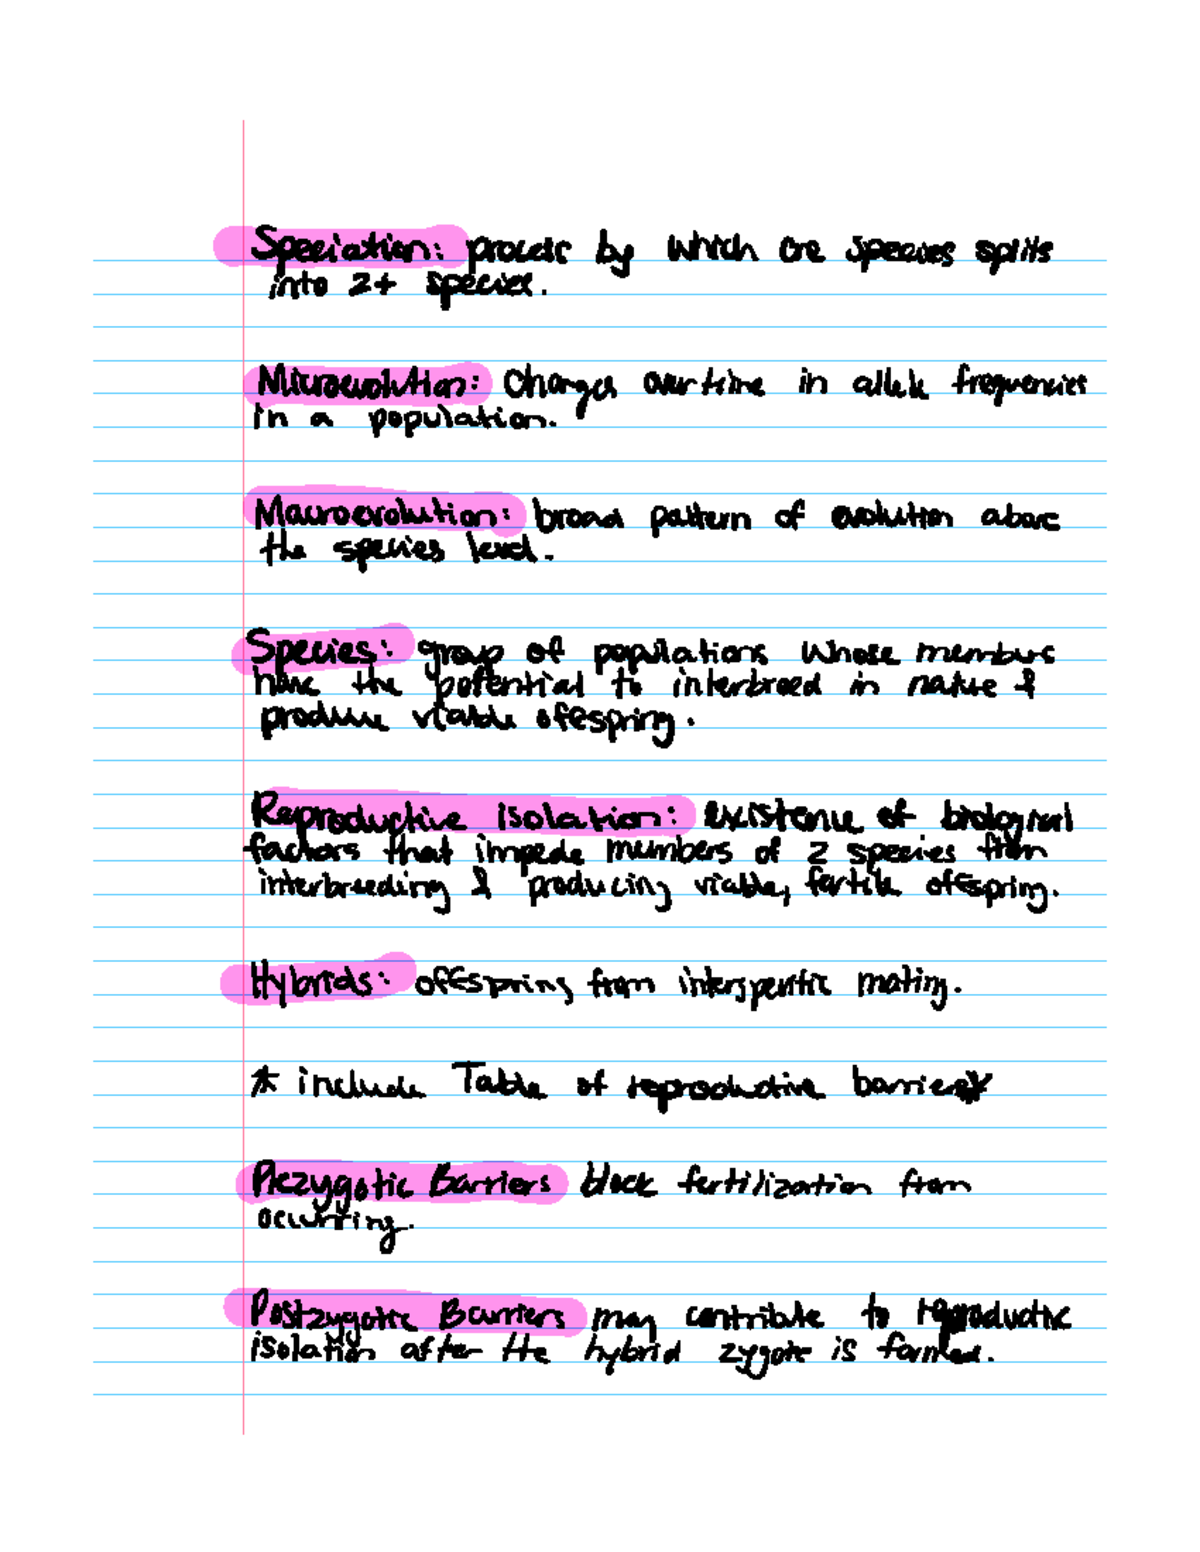 Speciation: process by which one species splits
into 2+ species.
Microevolution: Changes over time in allele frequencies
in a population.
Macroevolution: broad pattern of evolution above
the species level.
Species: group of populations whose members
have the potential to interbreed in nature &
produce viable offspring.
Reproductive Isolation: existence of biological
factors that impede members of 2 species from
interbreeding & producing viable, fertile offspring.
Hybrids: offspring from interspecific mating.
* include Table of reproductive barriers*
Prezygotic Barriers block fertilization from
occurring.
Postzygotic Barriers may contribute to reproductive
isolation after the hybrid zygote is formed.